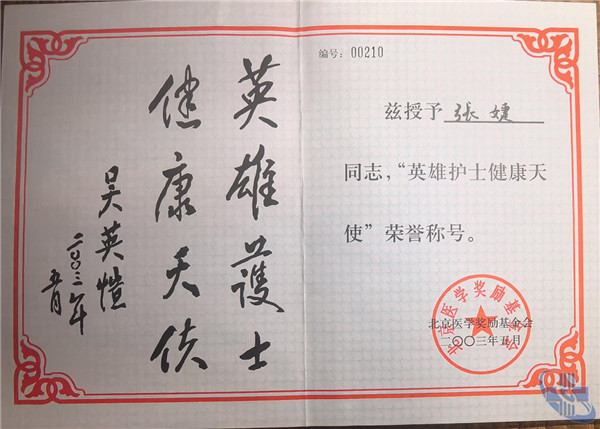 英雄護士
健康天使
吴英愷
二〇〇三年
五月
编号：00210
兹授予 张婕
同志，“英雄护士健康天
使”荣誉称号。
北京医学奖励基金会
北京医学奖励基金会
二〇〇三年五月